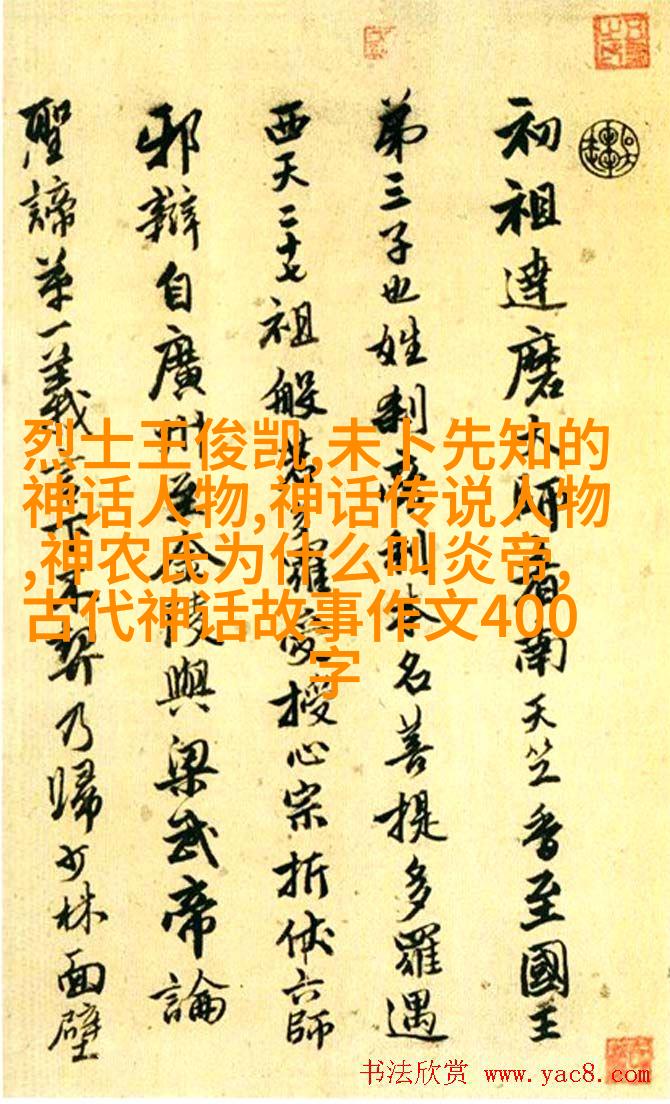 初祖達磨大師者南天竺香至國王
苐三子也姓刹帝利本名菩提多羅遇
西天二十七祖般若多羅密授心宗折伏六師
邪辯自廣州至金陵與梁武帝論
聖諦苐一義言下不契乃歸少林面壁
烈士王俊凯,未卜先知的
神话人物,神话传说人物
,神农氏为什么叫炎帝,
古代神话故事作文400
字
书法欣赏 www.yac8.com